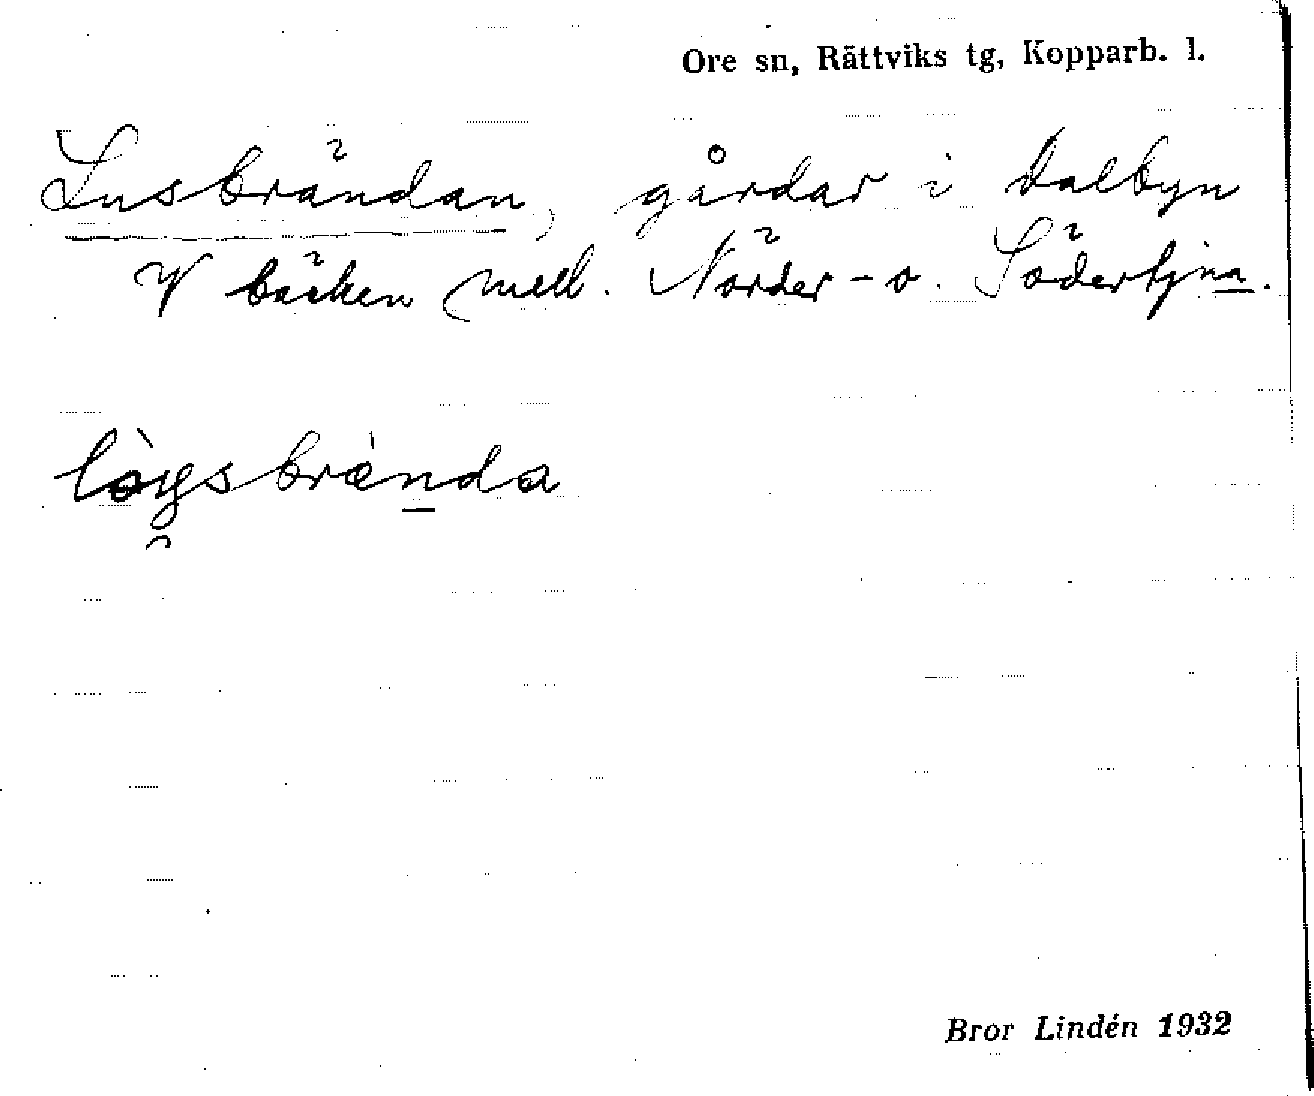 Ore sn, Rättviks tg, Kopparb. l.
Lusbrändan, gårdar i Dalbyn
V bäcken mell. Nörder- o. Södertjna.
lòysbrända
Bror Lindén 1932